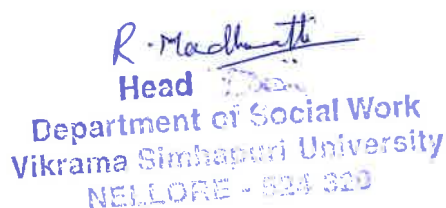 R. Madhumathi
Head
Department of Social Work
Vikrama Simhapuri University
NELLORE - 524 320